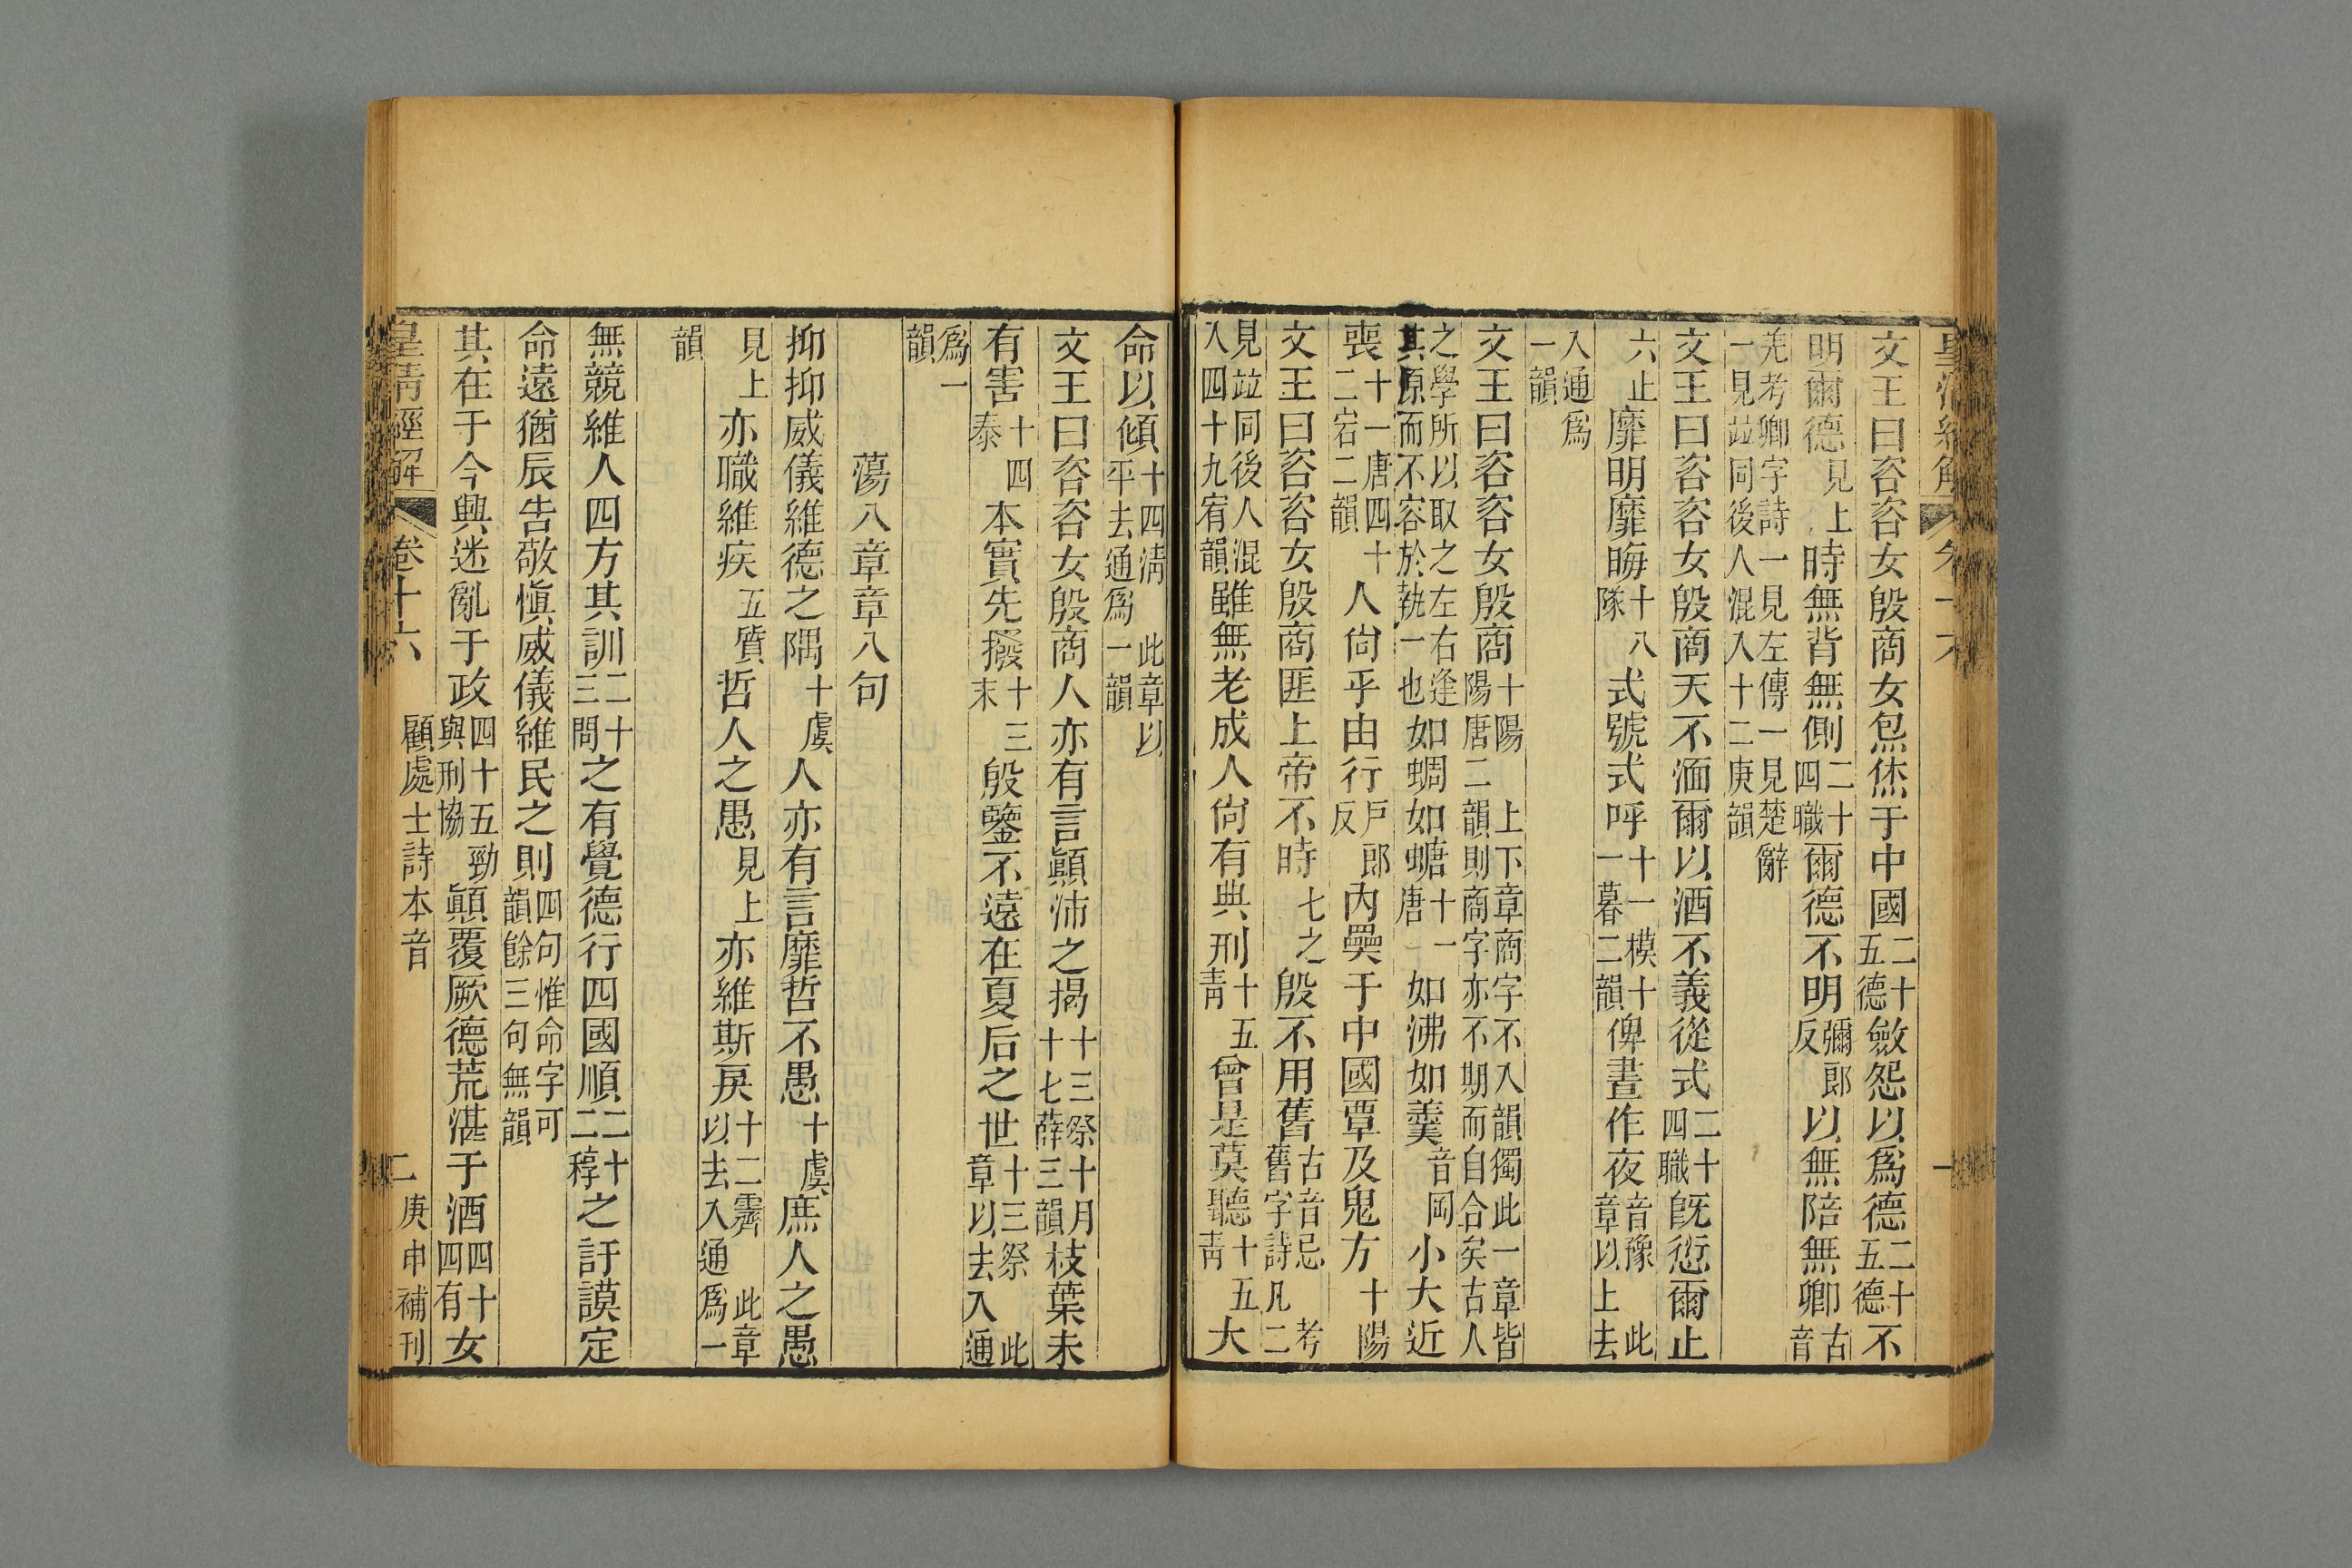 皇清經解 卷十六 一
文王曰咨咨女殷商女炰烋于中國二十五德斂怨以爲德二十五德不
明爾德見上時無背無側二十四職爾德不明彌郎反以無陪無卿古音
羌考卿字詩一見左傳一見楚辭一見竝同後人混入十二庚韻
文王曰咨咨女殷商天不湎爾以酒不義從式二十四職旣愆爾止
六止靡明靡晦十八隊式號式呼十一模十一暮二韻俾晝作夜音豫此章以上去
入通爲一韻
文王曰咨咨女殷商十陽上下章商字不入韻獨此一章皆陽唐二韻則商字亦不期而自合矣古人
之學所以取之左右逢其原而不容於執一也如蜩如螗十一唐如沸如羹音岡小大近
喪十一唐四十二宕二韻人尙乎由行戶郎反內奰于中國覃及鬼方十陽
文王曰咨咨女殷商匪上帝不時七之殷不用舊古音忌考舊字詩凡二
見竝同後人混入四十九宥韻雖無老成人尙有典刑十五靑曾是莫聽十五靑大
命以傾十四淸此章以平去通爲一韻
文王曰咨咨女殷商人亦有言顚沛之揭十三祭十月十七薛三韻枝葉未
有害十四泰本實先撥十三末殷鑒不遠在夏后之世十三祭此章以去入通
爲一韻
蕩八章章八句
抑抑威儀維德之隅十虞人亦有言靡哲不愚十虞庶人之愚
見上亦職維疾五質哲人之愚見上亦維斯戾十二霽此章以去入通爲一
韻
無競維人四方其訓二十三問之有覺德行四國順二十二稕之訏謨定
命遠猶辰告敬愼威儀維民之則四句惟命字可韻餘三句無韻
其在于今興迷亂于政四十五勁與刑協顚覆厥德荒湛于酒四十四有女
皇清經解 卷十六 顧處士詩本音 二 庚申補刊